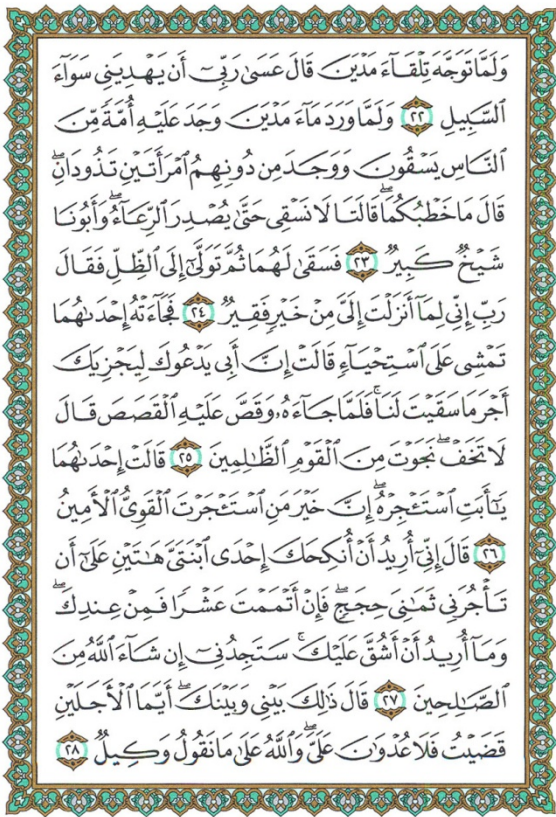 وَلَمَّا تَوَجَّهَ تِلْقَآءَ مَدْيَنَ قَالَ عَسَىٰ رَبِّىٓ أَن يَهْدِيَنِى سَوَآءَ
ٱلسَّبِيلِ ٢٢ وَلَمَّا وَرَدَ مَآءَ مَدْيَنَ وَجَدَ عَلَيْهِ أُمَّةً مِّنَ
ٱلنَّاسِ يَسْقُونَ وَوَجَدَ مِن دُونِهِمُ ٱمْرَأَتَيْنِ تَذُودَانِ ۖ
قَالَ مَا خَطْبُكُمَا ۖ قَالَتَا لَا نَسْقِى حَتَّىٰ يُصْدِرَ ٱلرِّعَآءُ ۖ وَأَبُونَا
شَيْخٌ كَبِيرٌ ٢٣ فَسَقَىٰ لَهُمَا ثُمَّ تَوَلَّىٰٓ إِلَى ٱلظِّلِّ فَقَالَ
رَبِّ إِنِّى لِمَآ أَنزَلْتَ إِلَىَّ مِنْ خَيْرٍ فَقِيرٌ ٢٤ فَجَآءَتْهُ إِحْدَىٰهُمَا
تَمْشِى عَلَى ٱسْتِحْيَآءٍ قَالَتْ إِنَّ أَبِى يَدْعُوكَ لِيَجْزِيَكَ
أَجْرَ مَا سَقَيْتَ لَنَا ۚ فَلَمَّا جَآءَهُۥ وَقَصَّ عَلَيْهِ ٱلْقَصَصَ قَالَ
لَا تَخَفْ ۖ نَجَوْتَ مِنَ ٱلْقَوْمِ ٱلظَّـٰلِمِينَ ٢٥ قَالَتْ إِحْدَىٰهُمَا
يَـٰٓأَبَتِ ٱسْتَـْٔجِرْهُ ۖ إِنَّ خَيْرَ مَنِ ٱسْتَـْٔجَرْتَ ٱلْقَوِىُّ ٱلْأَمِينُ
٢٦ قَالَ إِنِّىٓ أُرِيدُ أَنْ أُنكِحَكَ إِحْدَى ٱبْنَتَىَّ هَـٰتَيْنِ عَلَىٰٓ أَن
تَأْجُرَنِى ثَمَـٰنِىَ حِجَجٍ ۖ فَإِنْ أَتْمَمْتَ عَشْرًا فَمِنْ عِندِكَ ۖ
وَمَآ أُرِيدُ أَنْ أَشُقَّ عَلَيْكَ ۚ سَتَجِدُنِىٓ إِن شَآءَ ٱللَّهُ مِنَ
ٱلصَّـٰلِحِينَ ٢٧ قَالَ ذَٰلِكَ بَيْنِى وَبَيْنَكَ ۖ أَيَّمَا ٱلْأَجَلَيْنِ
قَضَيْتُ فَلَا عُدْوَٰنَ عَلَىَّ ۖ وَٱللَّهُ عَلَىٰ مَا نَقُولُ وَكِيلٌ ٢٨